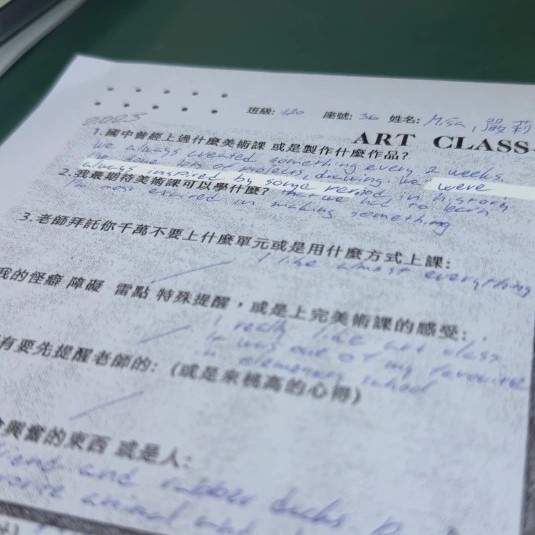 班級: 120 座號: 36 姓名: 嚴莉
ART CLASS
1.國中曾經上過什麼美術課 或是製作什麼作品?
We always created something every 2 weeks.
We done lots of projects, drawing. We were
always inspired by some period in history
that we had to learn
2.我最期待美術課可以學什麼?
I'm most excited in making something
3.老師拜託你千萬不要上什麼單元或是用什麼方式上課:
I like almost everything
我的怪癖 障礙 雷點 特殊提醒，或是上完美術課的感受:
I really like art class
it was one of my favourite
in elementary school
有要先提醒老師的: (或是來桃高的心得)
興奮的東西 或是人:
friend and rubber ducks
animal